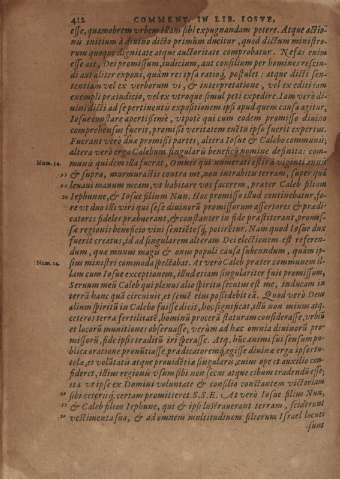 412 COMMENT. IN LIB. IOSVE,
esse, quamobrem urbem illam sibi expugnandam petere. Atque actio-
nis initium à diuino dicto primùm ducitur, quod dictum ministro-
rum quoque dignitate atque auctoritate comprobatur. Nefas enim
esse ait, Dei promissum, iudicium, aut consilium per homines rescin-
di aut aliter exponi, quàm res ipsa postulet: atque dicti sen-
tentiam vel ex verborum vi, & interpretatione, vel ex editi tum
exempli praeiudicio, vel ex vtroque simul peti expedire. Iam verò di-
uini dicti ad se pertinentis expositionem ipsi apud quem causa agitur,
Iosue constare apertissimè, vtpote qui cum eodem promisso diuino
comprehensus fuerit, promissi veritatem re ipsa fuerit expertus.
Fuerant verò duae promissi partes, altera Iosue & Calebo communis,
altera verò erga Calebum singularis beneficij nomine destinata: com-
Num. 14. munis quidem illa fuerat, Omnes qui numerati estis à viginti annis
& supra, & murmurastis contra me, non intrabitis terram, super quam
leuaui manum meam, vt habitare vos facerem, praeter Caleb filium
Iephunne, & Iosue filium Nun. Hoc promisso illud continebatur, fo-
re vt duo illi viri qui se diuinorum promissorum assertores & praedi-
catores fideles praebuerant, & constanter in fide praestiterant, promis-
sae regionis beneficio vini potirentur. Nam quod Iosue dux
fuerit creatus, id ad singularem alteram Dei electionem est referen-
dum, quae munus magis & onus populi causa subeundum, quàm ip-
Num. 14. sius ministri commoda spectabat. At verò Caleb praeter communem il-
lam cum Iosue exceptionem, illud etiam singulariter fuit promissum,
Seruum meum Caleb qui plenus alio spiritu secutus est me, inducam in
terram hanc quam circuiuit, et semen eius possidebit eam. Quod verò Deus
alium spiritum in Caleb fuisse dicit, hoc significat, illum non minus atque
ceteros terrae fertilitatem, hominum procerae staturam considerasse, vrbium
et locorum munitiones obseruasse, verùm ad haec omnia diuinorum pro-
missorum, fide ipsis tradita viri perstasse. Atque hunc animi sui sensum pu-
blica oratione pronuntiasse, praedicatoremque egisse diuinae erga ipsos vo-
luntatis, et potestatis atque prouidentiae suasorem, cuius ope et auxilio con-
fideret, illius regionis vsum sibi non secus atque cibum tradendum esse,
ita vt ipse ex Domini voluntate & consilio constantem victoriam
sibi ceterisque certam promitteret. S.S.E. At verò Iosue filius Nun,
& Caleb filius Iephune, qui & ipsi lustrauerant terram, sciderunt
vestimenta sua, & ad omnem multitudinem filiorum Israel locuti
sunt